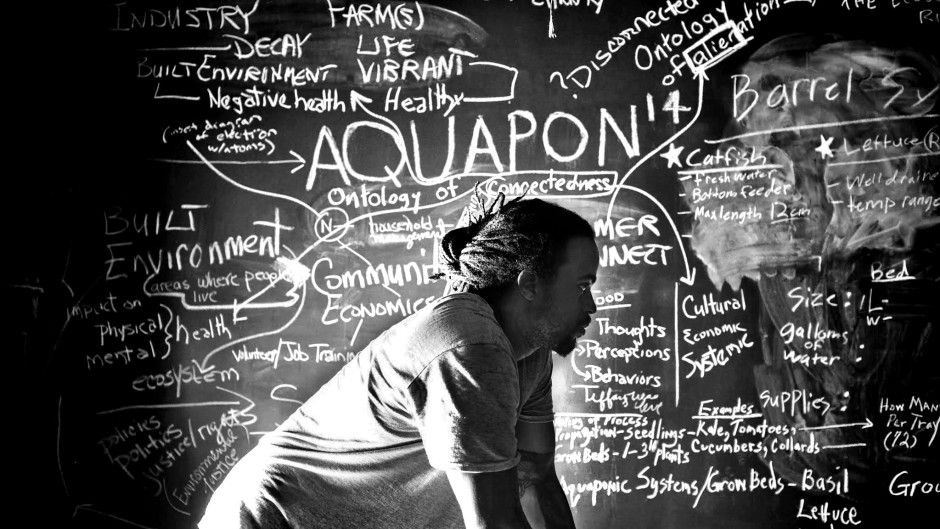 INDUSTRY FARM(S)
DECAY LIFE
BUILT ENVIRONMENT VIBRANT
Negative health Healthy
(insert diagram
of electron
w/atoms)
?Disconnected
Ontology
of alienation
AQUAPON '14
Ontology of Connectedness
N
household
management
BUILT
Environment
areas where people
live
impact on
physical
mental
health
ecosystem
policies
politics
justice/rights
Environmental
Justice
Economics
Volunteer/Job Training
Thoughts
Perceptions
Behaviors
Cultural
Economic
Systemic
Barrel Sy
Catfish
- Fresh water
- Bottom feeder
- Max length 12cm
Lettuce (R
- Well draine
- temp range
Bed
Size: 1L-
W-
gallons
of
water :
Supplies:
Examples
of Process
- Seedlings - Kale, Tomatoes,
Grow Beds - 1-3 Plants Cucumbers, Collards
Aquaponic Systems/Grow Beds - Basil
Lettuce
How Man
Per Tray
(72)
Grou